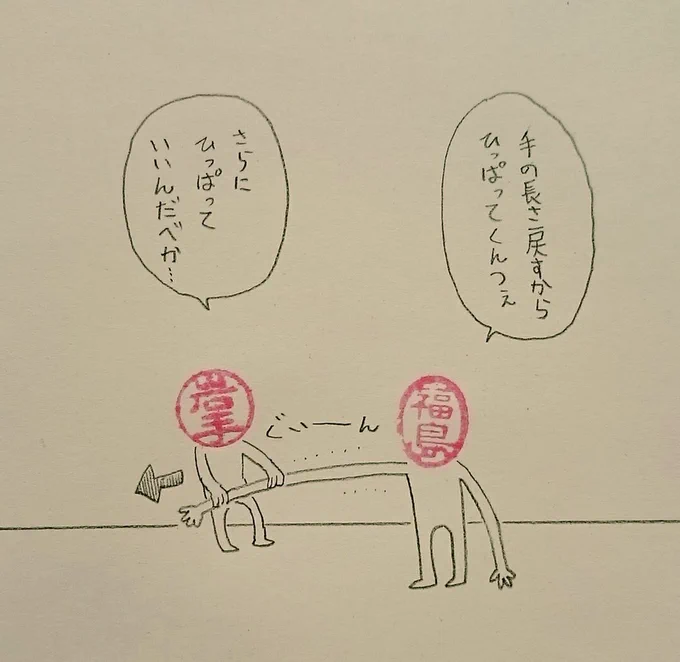 手の長さ戻すから
ひっぱってくんつぇ
さらに
ひっぱって
いいんだべか…
福島
ごいーん
岩手